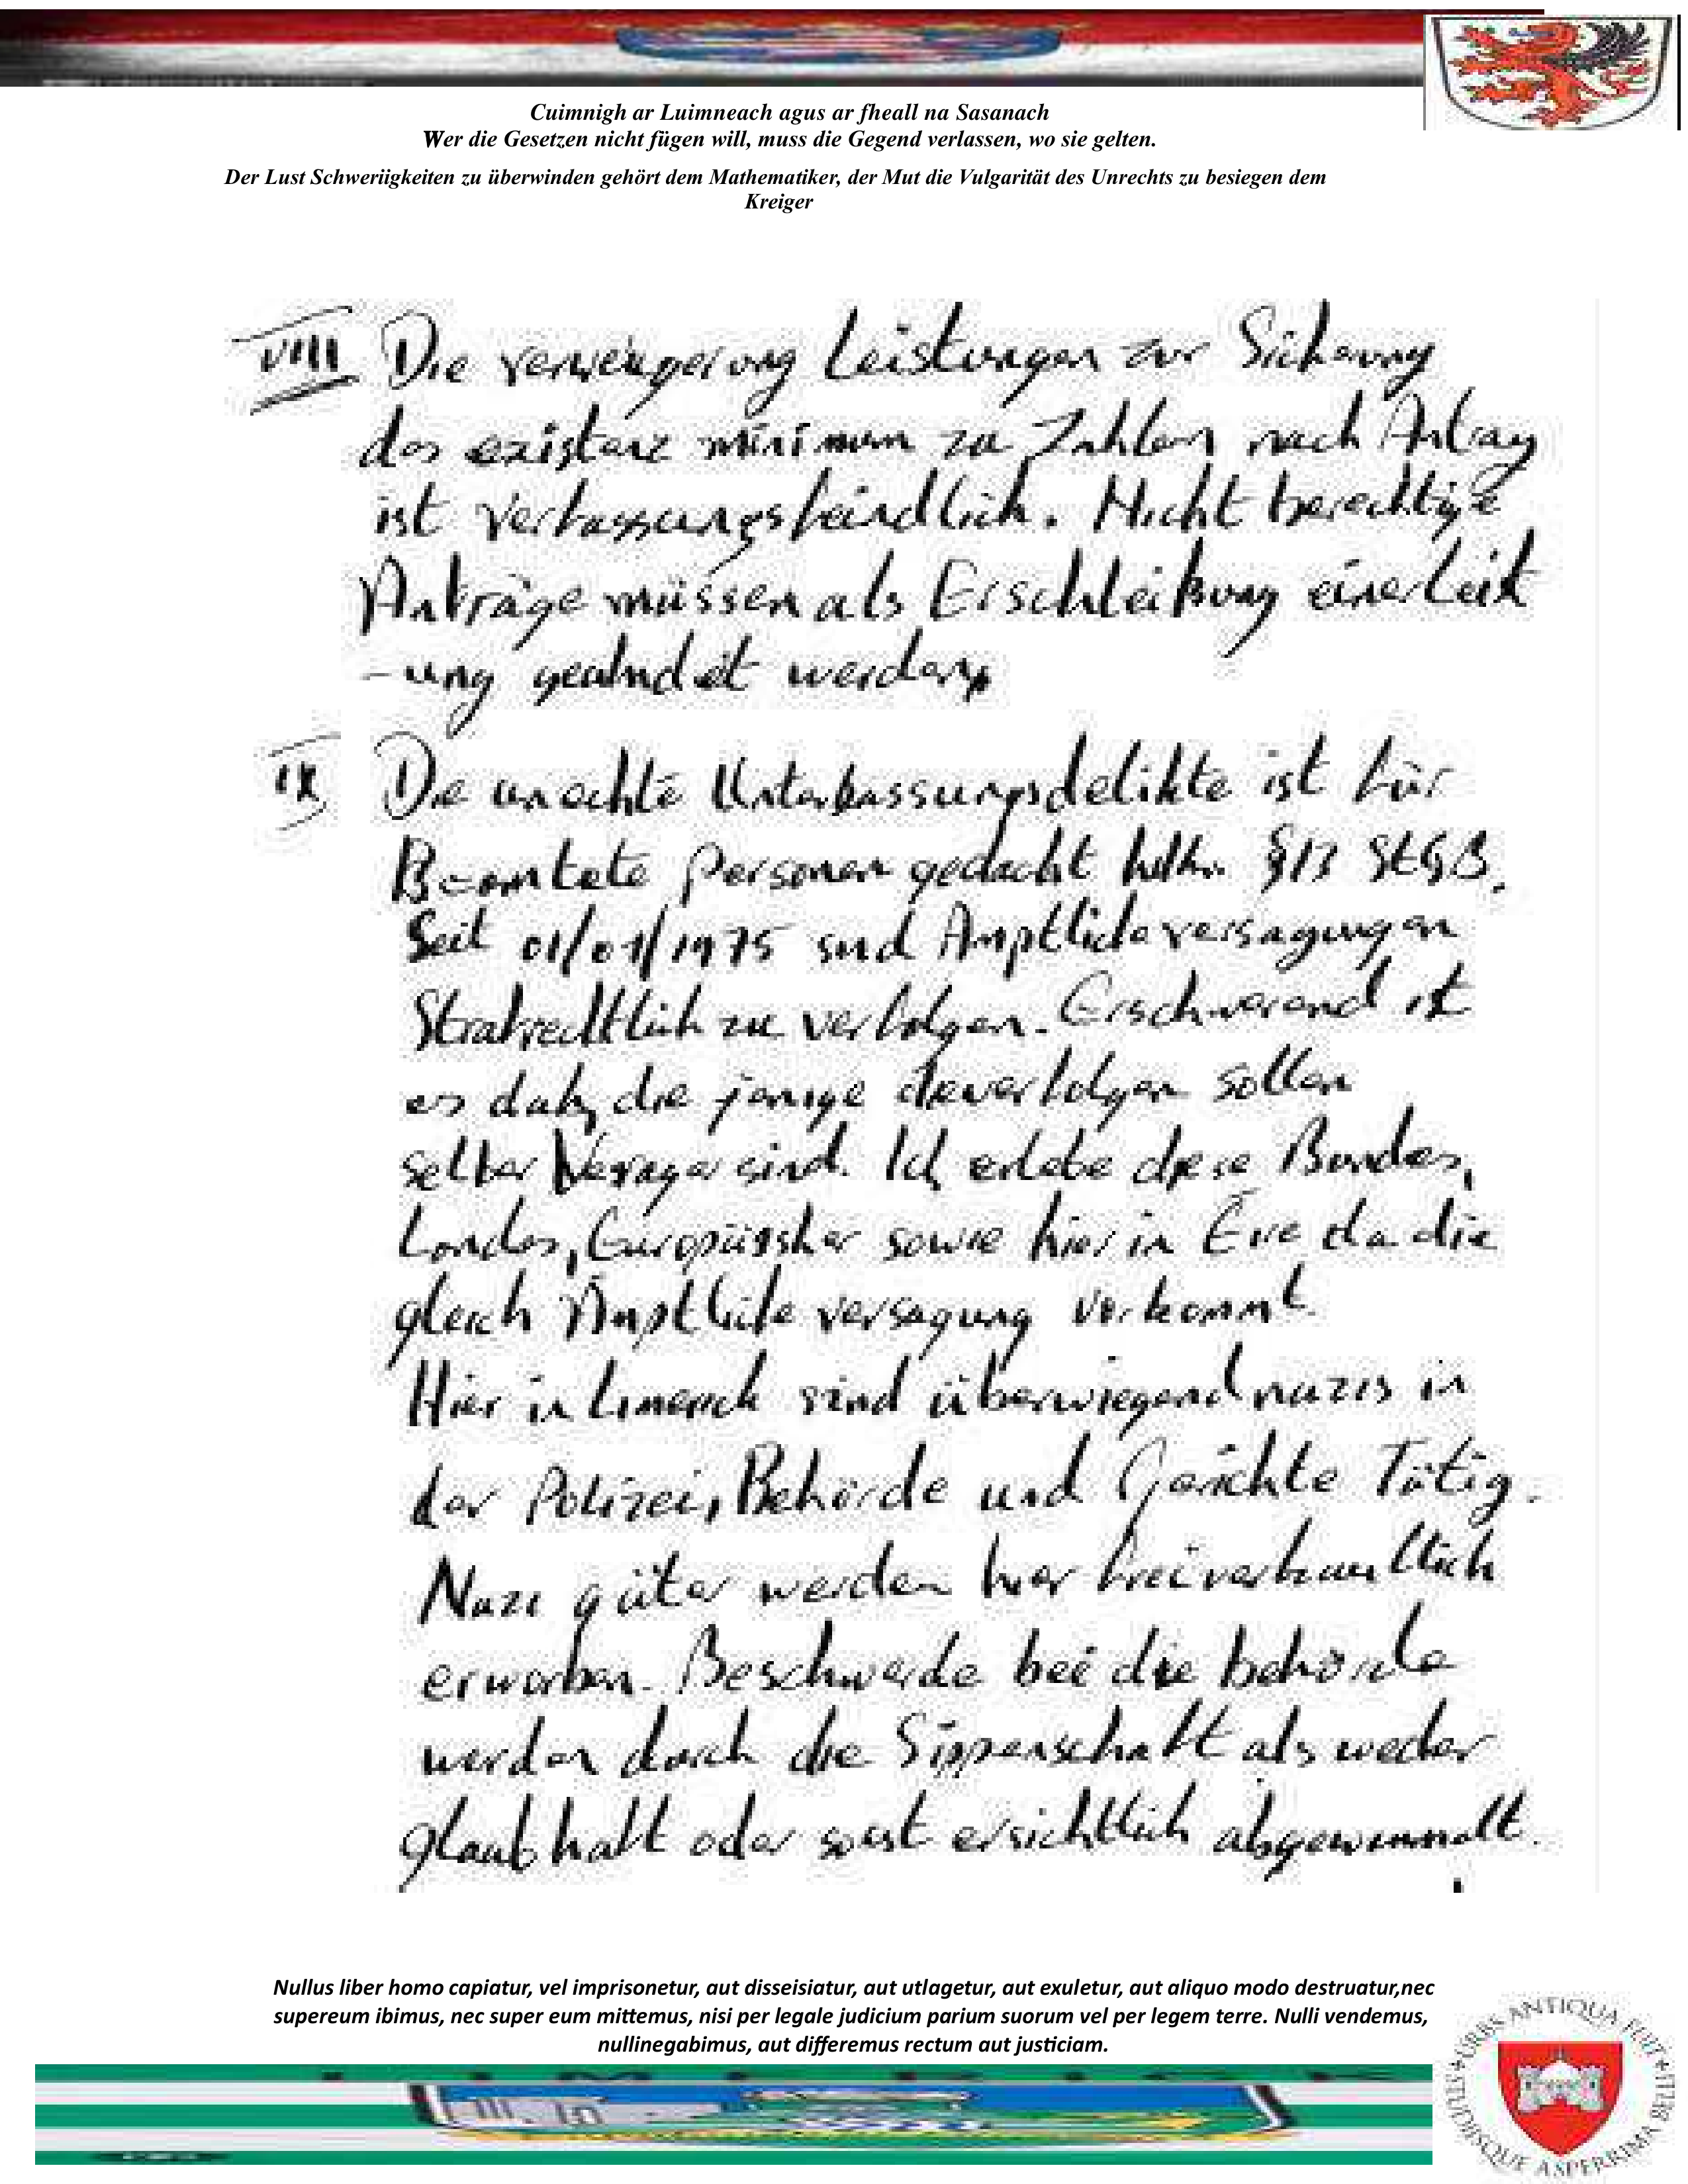 Cuimnigh ar Luimneach agus ar fheall na Sasanach
Wer die Gesetzen nicht fügen will, muss die Gegend verlassen, wo sie gelten.
Der Lust Schweriigkeiten zu überwinden gehört dem Mathematiker, der Mut die Vulgarität des Unrechts zu besiegen dem
Kreiger
VIII Die verweigerung Leistungen zur Sicherung
das existenz minimum zu Zahlen nach Antrag
ist Verfassungsfeindlich. Nicht berechtigte
Anträge müssen als Erschleißung einer Leist
-ung geahndet werden
IX Die unechte Unterlassungsdelikte ist für
Beamtete Personen gedacht §13 StGB.
Seit 01/01/1975 sind Amptliche versagungen
Strafrechtlich zu verfolgen. Erschwerend ist
es daß die jenige die verfolgen sollen
selber Versager sind. Ich erlebe diese Bundes,
Landes, Europäisher sowie hier in Eire da die
gleich Amptliche versagung vorkommt.
Hier in Limerick sind überwiegend nazis in
der Polizei, Behörde und Gerichte Tätig.
Nazi güter werden hier frei verkauflich
erworben. Beschwerde bei die behörde
werden durch die Sippenschaft als weder
glaubhaft oder sonst ersichtlich abgewimmelt.
Nullus liber homo capiatur, vel imprisonetur, aut disseisiatur, aut utlagetur, aut exuletur, aut aliquo modo destruatur,nec
supereum ibimus, nec super eum mittemus, nisi per legale judicium parium suorum vel per legem terre. Nulli vendemus,
nullinegabimus, aut differemus rectum aut justiciam.
URBS ANTIQUA FUIT STUDIISQUE ASPERRIMA BELLI